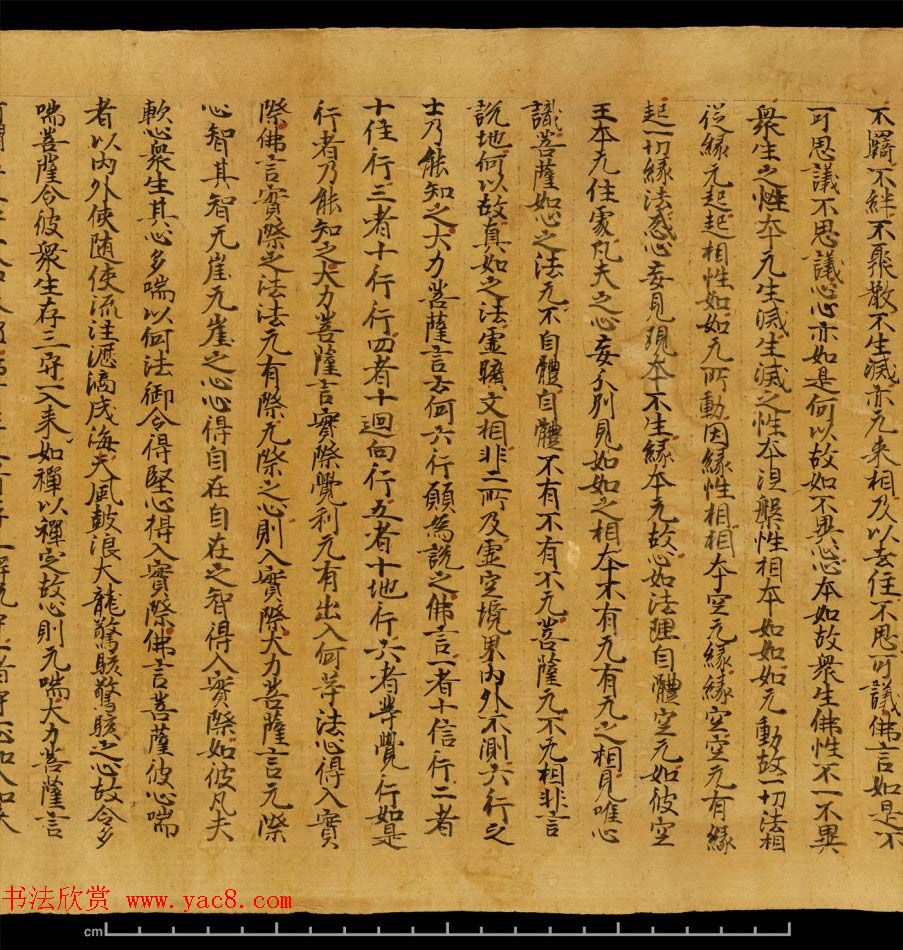 不羇不絆不聚散不生滅亦无来相及以去住不思可議佛言如是不
可思議不思議心心亦如是何以故如不異心心本如故衆生佛性不一不異
衆生之性本无生滅生滅之性性本涅槃性相本如如如无動故一切法相
從緣无起起相性如如无所動因緣性相相本空无緣緣空空无有緣
起一切緣法惑心妄見現本不生緣本无故心如法理自體空无如彼空
王本无住家凡夫之心妄分別見如如之相本不有无有无之相見唯心
識菩薩如心之法无不自體自體不有不有不无菩薩无不无相非言
說地何以故真如之法虛曠文相非二所及虛空境界内外不測六行之
士乃能知之大力菩薩言云何六行願為說之佛言一者十信行二者
十住行三者十行行四者十迴向行五者十地行六者等覺行如是
行者乃能知之大力菩薩言實際覺利无有出入何等法心得入實
際佛言實際之法法无有際无際之心則入實際大力菩薩言无際
心智其智无崖无崖之心心得自在自在之智得入實際如彼凡夫
軟心衆生其心多喘以何法御令得堅心得入實際佛言菩薩彼心喘
者以内外使随使流注滴瀝成海大風鼓浪大龍驚駭驚駭之心故令多
喘菩薩令彼衆生存三守一入来如禪以禪定故心則无喘大力菩薩言
cm
书法欣赏 www.yac8.com